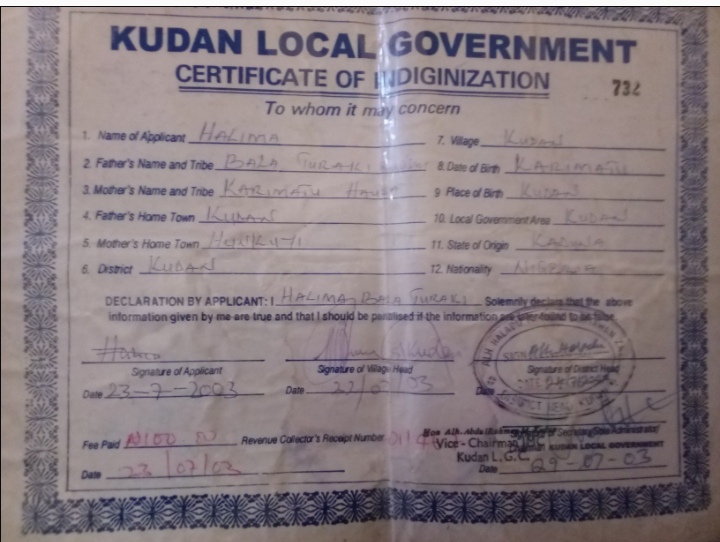 KUDAN LOCAL GOVERNMENT
CERTIFICATE OF INDIGINIZATION
732
To whom it may concern
1. Name of Applicant HALIMA
7. Village KUDAN
2. Father's Name and Tribe BALA TURAKI
8. Date of Birth KARIMATU
3. Mother's Name and Tribe KARIMATU HAUSA
9 Place of Birth KUDAN
4. Father's Home Town KUDAN
10. Local Government Area KUDAN
5. Mother's Home Town
11. State of Origin KADUNA
6. District KUDAN
12. Nationality NIGERIA
DECLARATION BY APPLICANT: I HALIMA BALA TURAKI Solemnly declare that the above
information given by me are true and that I should be penalised if the information are later found to be false.
Signature of Applicant
Signature of Village Head
Signature of District Head
Date 23-7-2003
Date 22/07/03
Date
Fee Paid ₦100.00
Revenue Collector's Receipt Number
Vice-Chairman
KUDAN LOCAL GOVERNMENT
Kudan L.G.C.
Date 23/07/03
Date 29-07-03